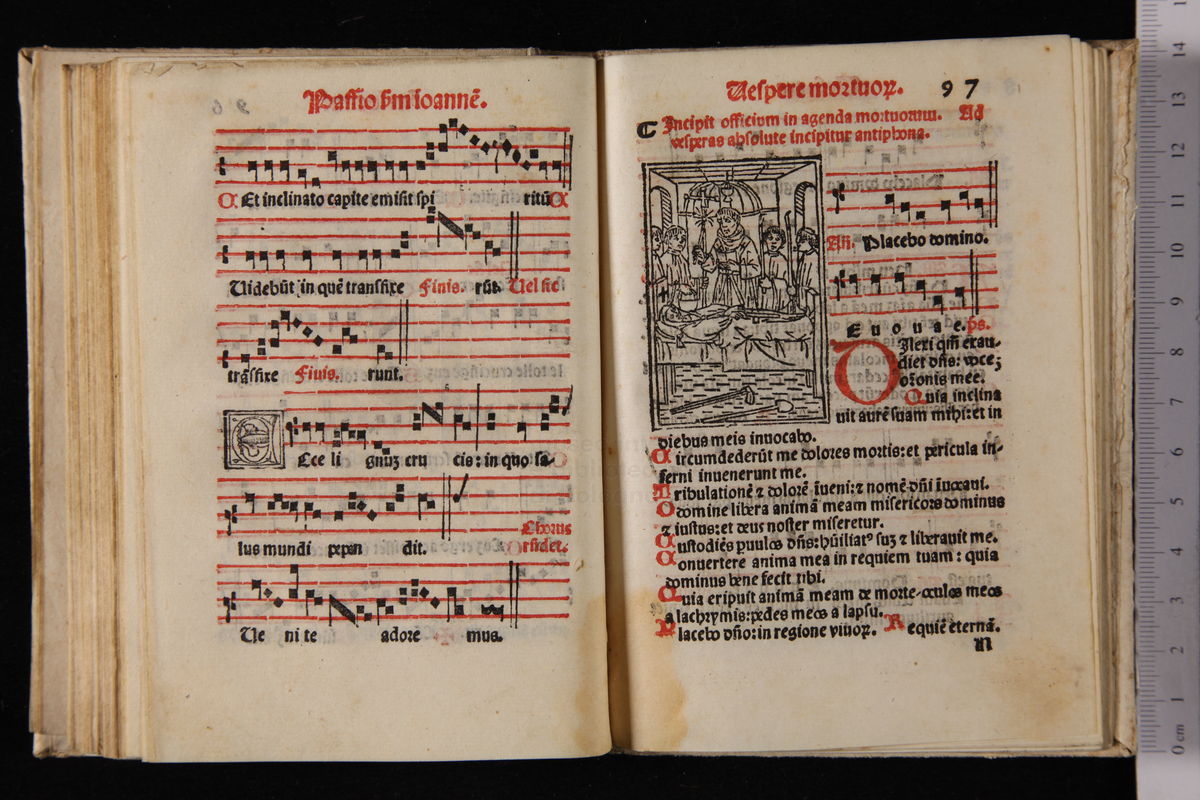 Passio ẜm Ioannē.
Et inclinato capite emisit spi ritū
Uidebūt in quē transfixe Finis. rūt. Uel sic
trāsfixe Finis. runt.
Ecce li gnuʒ cru cis: in quo sa-
lus mundi pepen dit. Chorus
rñdet.
Ue ni te adore mus.
Uespere mortuoꝝ. 97
Incipit officium in agenda mortuorum. Ad
vesperas absolute incipitur antiphona.
Añ. Placebo domino.
E u o u a e. ps.
Dilexi qm̄ exau-
diet dñs: voceʒ
orōnis mee.
Quia inclina
uit aurē suam mihi: et in
diebus meis inuocabo.
Circumdederūt me dolores mortis: et pericula in-
ferni inuenerunt me.
Tribulationē ⁊ dolorē īueni: ⁊ nomē dñi īuocaui.
O domine libera animā meam misericors dominus
⁊ iustus: et deus noster miseretur.
Custodiēs puulos dñs: hūiliatꝰ suʒ ⁊ liberauit me.
Conuertere anima mea in requiem tuam: quia
dominus bene fecit tibi.
Quia eripuit animā meam de morte oculos meos
a lachrymis: pedes meos a lapsu.
Placebo dño: in regione viuoꝝ. Requiē eternā.
N
0 cm 1 2 3 4 5 6 7 8 9 10 11 12 13 14